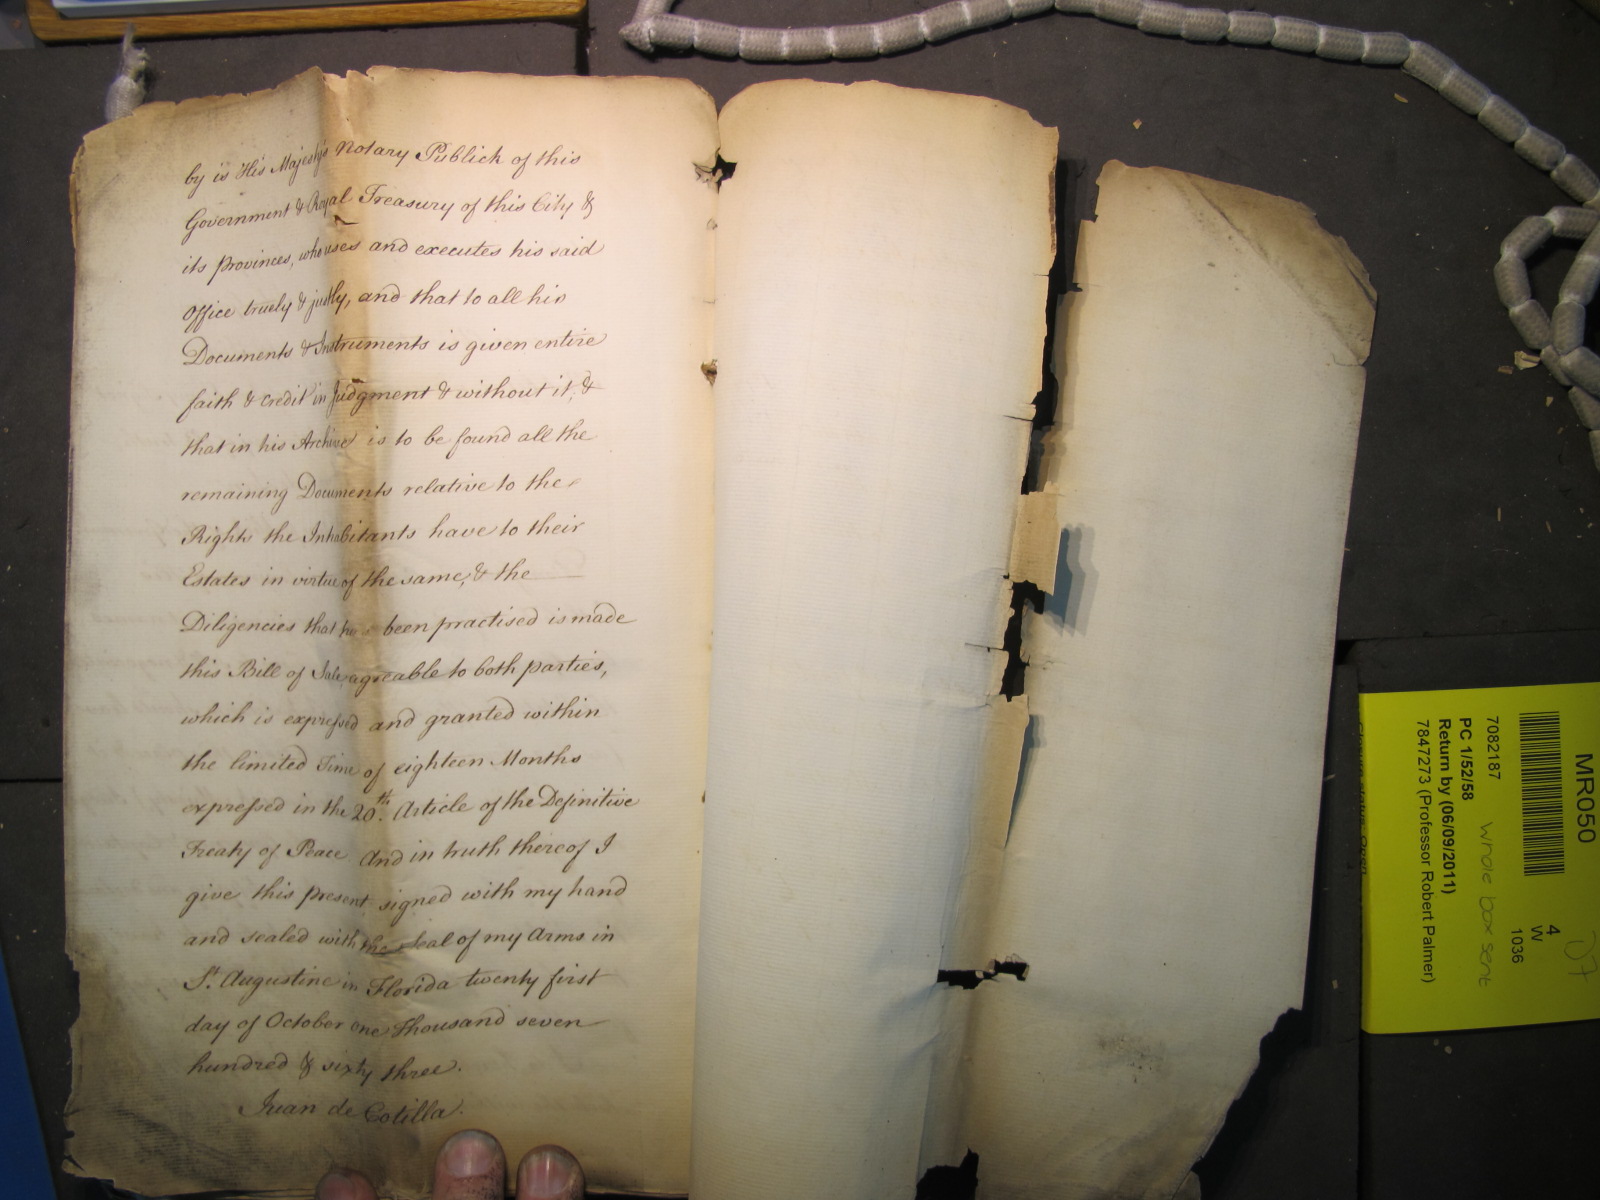 by is His Majesty's Notary Publick of this
Government & Royal Treasury of this City &
its Provinces, who uses and executes his said
Office truely & justly, and that to all his
Documents & Instruments is given entire
faith & credit in Judgment & without it, &
that in his Archive is to be found all the
remaining Documents relative to the
Rights the Inhabitants have to their
Estates in virtue of the same, & the
Diligencies that has been practised is made
this Bill of Sale, agreable to both parties,
which is expressed and granted within
the limited Time of eighteen Months
expressed in the 20th. Article of the Definitive
Treaty of Peace And in truth thereof I
give this present, signed with my hand
and sealed with the Seal of my Arms in
St. Augustine in Florida twenty first
day of October one thousand seven
hundred & sixty three.
Juan de Cotilla.
MR050
4
W
1036
7082187
whole box sent
PC 1/52/58
Return by (06/09/2011)
7847273 (Professor Robert Palmer)